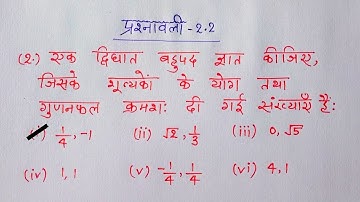 प्रश्नावली - 2.2
(2.) एक द्विघात बहुपद ज्ञात कीजिए,
जिसके शून्यकों के योग तथा
गुणनफल क्रमशः दी गई संख्याएँ हैं:
(i) 1/4, -1 (ii) √2, 1/3 (iii) 0, √5
(iv) 1, 1 (v) -1/4, 1/4 (vi) 4, 1